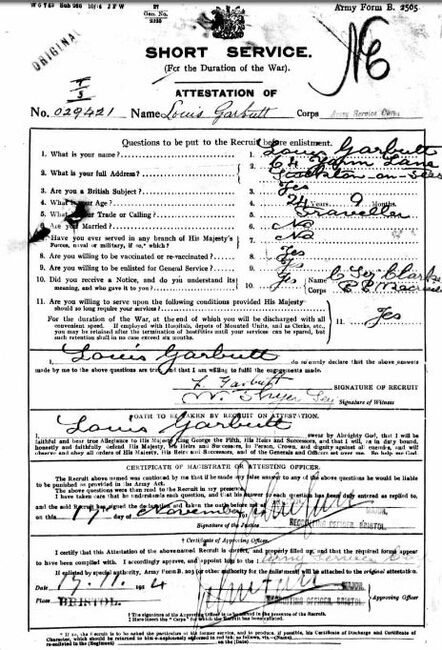 W 6742 27 Army Form B. 2505.
ORIGINAL
SHORT SERVICE.
(For the Duration of the War).
ATTESTATION OF
No. 029421 Name Louis Garbutt Corps Army Service Corps
Questions to be put to the Recruit before enlistment.
1. What is your name? 1. Louis Garbutt
2. What is your full Address? 2. Yarm Lane
Stockton-on-Tees
3. Are you a British Subject? 3. Yes
4. What is your Age? 4. 24 Years 9 Months.
5. What is your Trade or Calling? 5. Traveller
6. Are you Married? 6. No
7. Have you ever served in any branch of His Majesty's Forces, naval or military, if so, which? 7. No
8. Are you willing to be vaccinated or re-vaccinated? 8. Yes
9. Are you willing to be enlisted for General Service? 9. Yes
10. Did you receive a Notice, and do you understand its meaning, and who gave it to you? 10. Yes Name Corps
11. Are you willing to serve upon the following conditions provided His Majesty should so long require your services? 11. Yes
For the duration of the War, at the end of which you will be discharged with all convenient speed. If employed with Hospitals, depots of Mounted Units, and as Clerks, etc., you may be retained after the termination of hostilities until your services can be spared, but such retention shall in no case exceed six months.
I, Louis Garbutt do solemnly declare that the above answers
made by me to the above questions are true and that I am willing to fulfil the engagements made.
L. Garbutt SIGNATURE OF RECRUIT
Signature of Witness
OATH TO BE TAKEN BY RECRUIT ON ATTESTATION.
I, Louis Garbutt swear by Almighty God, that I will be
faithful and bear true Allegiance to His Majesty King George the Fifth, His Heirs and Successors, and that I will, as in duty bound,
honestly and faithfully defend His Majesty, His Heirs and Successors, in Person, Crown, and dignity against all enemies, and will
observe and obey all orders of His Majesty, His Heirs and Successors, and of the Generals and Officers set over me. So help me God.
CERTIFICATE OF MAGISTRATE OR ATTESTING OFFICER.
The Recruit above named was cautioned by me that if he made any false answer to any of the above questions he would be liable
to be punished as provided in the Army Act.
The above questions were then read to the Recruit in my presence.
I have taken care that he understands each question, and that his answer to each question has been duly entered as replied to, and
the said Recruit has
on this 17th day of November
MAJOR,
Signature of the Justice RECRUITING OFFICER, BRISTOL.
† Certificate of Approving Officer.
I certify that this Attestation of the above-named Recruit is correct, and properly filled up, and that the required forms appear
to have been complied with. I accordingly approve, and appoint him to the ‡ Army Service Corps
If enlisted by special authority, Army Form B. 203 (or other authority for the enlistment) will be attached to the original attestation.
Date 17. 11. MAJOR,
Place BRISTOL. RECRUITING OFFICER, BRISTOL. Approving Officer
† The signature of the Approving Officer is to be affixed in the presence of the Recruit.
‡ Here insert the "Corps" for which the Recruit has been enlisted.